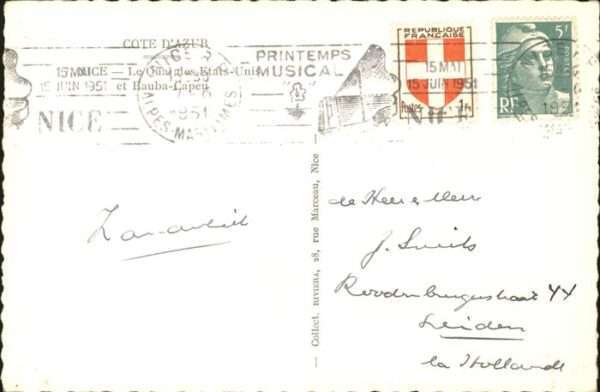 COTE D'AZUR
NICE — Le Quai des Etats-Unis
et Rauba-Capeu
15 MAI
15 JUIN 1951
NICE
NICE
1951
ALPES-MARITIMES
PRINTEMPS
MUSICAL
REPUBLIQUE
FRANÇAISE
15 MAI
15 JUIN 1951
Postes 1F
NICE
5F
RF
1951
Collect. RIVIERA, 28, rue Marceau, Nice
de Heer & Mevr
J. Smits
Roodenburgerstraat 44
Leiden
la Hollande